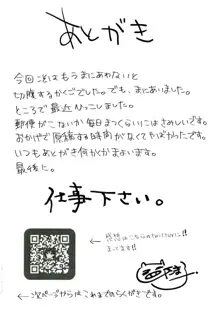 あとがき
今回こそはもうまにあわないと
切腹するかくごでした。でも、まにあいました。
ところで最近ひっこしました。
郵便がこないか毎日まっくらいにはさみしいです。
おかげで原稿する時間がなくてやばかったです。
いつもあとがき何かかまよいます。
最後に。
仕事下さい。
感想はこちらのtwitterに
まってます!!
←次ページからはこれまでのらくがきです。